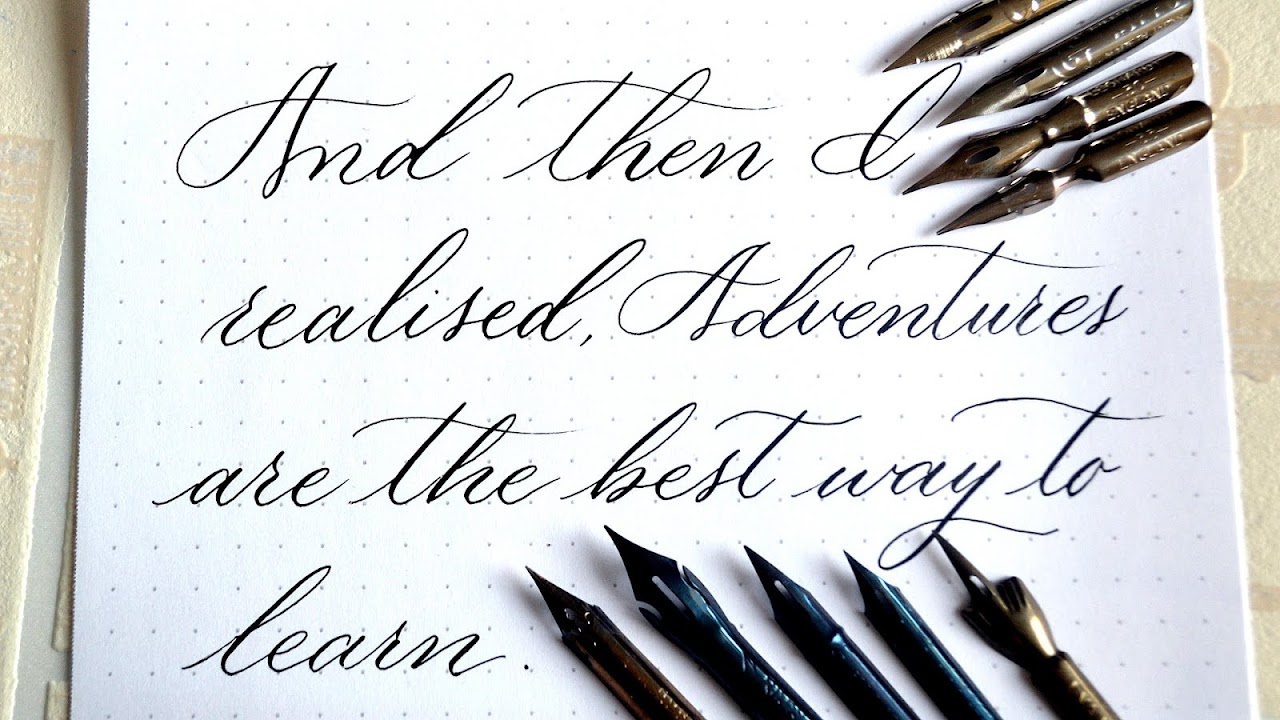 And then I
realised, Adventures
are the best way to
learn.